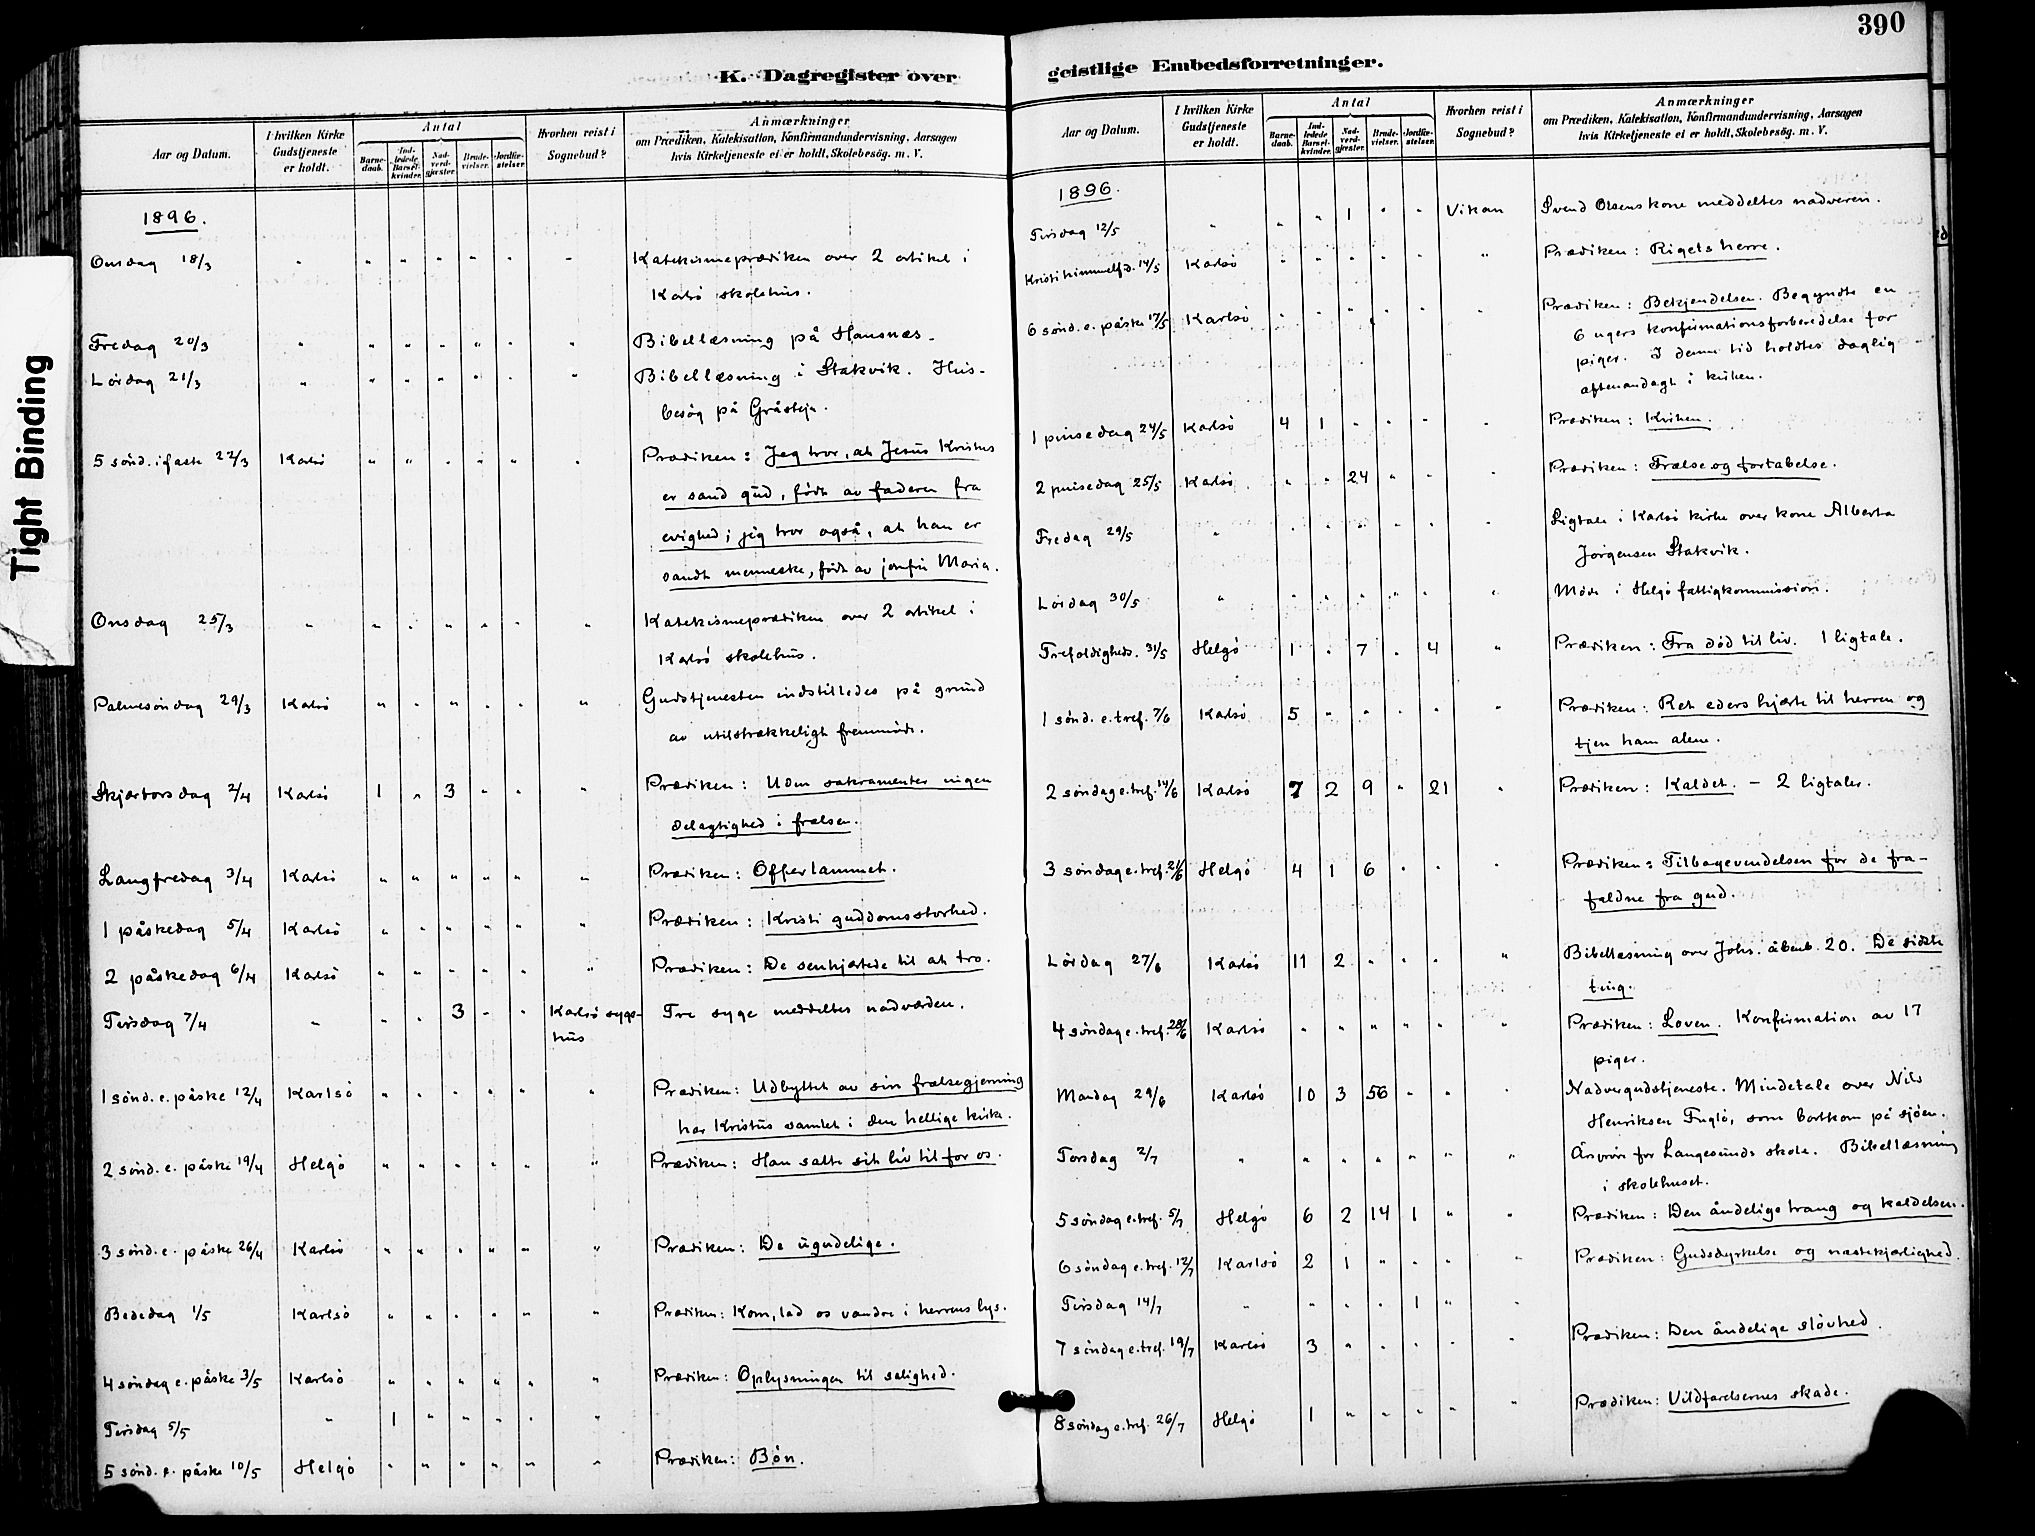 390
Tight Binding
K. Dagregister over
Aar og Datum. I hvilken Kirke Gudstjeneste er holdt. Antal Barnedaab. Indledede Barselkvinder. Nadverdgjæster. Brudevielser. Jordfæstelser. Hvorhen reist i Sognebud? Anmærkninger om Prædiken, Katekisation, Konfirmandundervisning, Aarsagen hvis Kirketjeneste ei er holdt, Skolebesøg. m. V.
1896.
Onsdag 18/3 " " " " " " " Katekismeprædiken over 2 artikel i
Karlsö skolehus.
Fredag 20/3 " " " " " " " Bibellæsning på Hansnæs.
Lördag 21/3 " " " " " " " Bibellæsning i Stakvik. Hus-
besög på Gråstejn.
5 sönd. i faste 22/3 Karlsö " " " " " " Prædiken: Jeg tror, at Jesus Kristus
er sand gud, födt av faderen fra
evighed; jeg tror også, at han er
sandt menneske, födt av jomfru Maria.
Onsdag 25/3 " " " " " " " Katekismeprædiken over 2 artikel i
Karlsö skolehus.
Palmesöndag 29/3 Karlsö " " " " " " Gudstjenesten indstilledes på grund
av utilstrækkeligt fremmöde.
Skjærtorsdag 2/4 Karlsö 1 " 3 " " " Prædiken: Uden sakramenter ingen
delagtighed i frelsen.
Langfredag 3/4 Karlsö " " " " " " Prædiken: Offerlammet.
1 påskedag 5/4 Karlsö " " " " " " Prædiken: Kristi guddomsstorhed.
2 påskedag 6/4 Karlsö " " " " " " Prædiken: De senhjertede til at tro.
Tirsdag 7/4 " " " 3 " " Karlsö syge- Tre syge meddeltes nadverden.
hus
1 sönd. e. påske 12/4 Karlsö " " " " " " Prædiken: Udbyttet av sin frelsegjerning
har Kristus samlet i den hellige kirke.
2 sönd. e. påske 19/4 Helgö " " " " " " Prædiken: Han satte sit liv til for os.
3 sönd. e. påske 26/4 Karlsö " " " " " " Prædiken: De ugudelige.
Bededag 1/5 Karlsö " " " " " " Prædiken: Kom, lad os vandre i herrens lys.
4 söndag e. påske 3/5 Karlsö " " " " " " Prædiken: Oplysningen til salighed.
Tirsdag 5/5 " 1 " " " " "
5 sönd. e. påske 10/5 Helgö " " " " " " Prædiken: Bön.
geistlige Embedsforretninger.
Aar og Datum. I hvilken Kirke Gudstjeneste er holdt. Antal Barnedaab. Indledede Barselkvinder. Nadverdgjæster. Brudevielser. Jordfæstelser. Hvorhen reist i Sognebud? Anmærkninger om Prædiken, Katekisation, Konfirmandundervisning, Aarsagen hvis Kirketjeneste ei er holdt, Skolebesøg. m. V.
1896.
Tirsdag 12/5 " " " 1 " " Vikan Svend Olsens kone meddeltes nadveren.
Kristi himmelfd. 14/5 Karlsö " " " " " " Prædiken: Rigets herre.
6 sönd. e. påske 17/5 Karlsö " " " " " " Prædiken: Bekjendelsen. Begyndte en
6 ugers konfirmationsforberedelse for
piger. I denne tid holdtes daglig
aftenandagt i kirken.
1 pinsedag 24/5 Karlsö 4 1 " " " " Prædiken: Kirken.
2 pinsedag 25/5 Karlsö " " 24 " " " Prædiken: Frelse og fortabelse.
Fredag 29/5 " " " " " " " Ligtale i Karlsö kirke over kone Alberta
Jörgensen Stakvik.
Lördag 30/5 " " " " " " " Möde i Helgö fattigkommission.
Trefoldigheds. 31/5 Helgö 1 " 7 " 4 " Prædiken: Fra död til liv. 1 ligtale.
1 sönd. e. tref. 7/6 Karlsö 5 " " " " " Prædiken: Ret eders hjerte til herren og
tjen ham alene.
2 söndag e. tref. 14/6 Karlsö 7 2 9 " 21 " Prædiken: Kaldet. - 2 ligtaler.
3 söndag e. tref. 21/6 Helgö 4 1 6 " " " Prædiken: Tilbagevendelsen for de fra-
faldne fra gud.
Lördag 27/6 Karlsö 11 2 " " " " Bibellæsning over Johs. åbenb. 20. De sidste
ting.
4 söndag e. tref. 28/6 Karlsö " " " " " " Prædiken: Loven. Konfirmation av 17
piger.
Mandag 29/6 Karlsö 10 3 56 " " " Nadvergudstjeneste. Mindetale over Nils
Henriksen Fuglö, som bortkom på sjöen.
Torsdag 2/7 " " " " " " " Årspröve for Langesunds skole. Bibellæsning
i skolehuset.
5 söndag e. tref. 5/7 Helgö 6 2 14 1 " " Prædiken: Den åndelige trang og kaldelsen.
6 söndag e. tref. 12/7 Karlsö 2 1 " " " " Prædiken: Gudsdyrkelse og næstekjærlighed.
Tirsdag 14/7 " " " " 1 " "
7 söndag e. tref. 19/7 Karlsö 3 " " " " " Prædiken: Den åndelige slövhed.
8 söndag e. tref. 26/7 Helgö 1 " " " " " Prædiken: Vildfarelsernes skade.